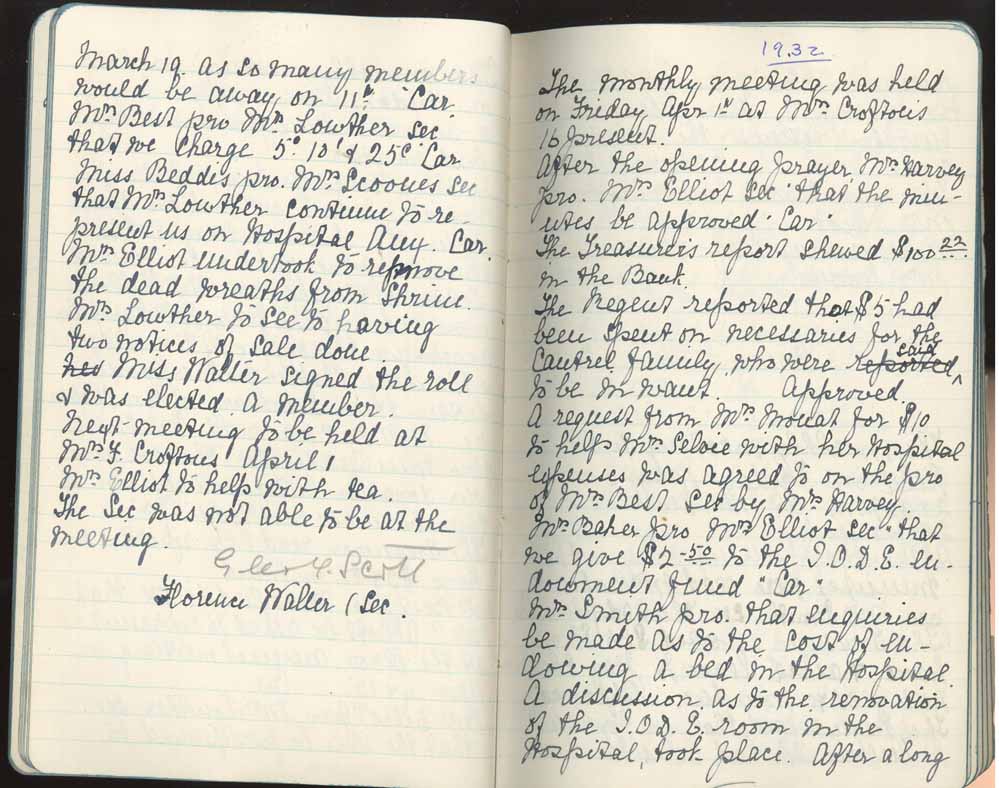 March 19. as so many members
would be away, on 11th "Car.
Mrs Best pro Mrs Lowther sec
that we charge 5c 10c & 25c "Car
Miss Beddis pro. Mrs Scoones sec
that Mrs Lowther continue to re-
present us on Hospital Aux. Car.
Mrs Elliot undertook to remove
the dead wreaths from Shrine.
Mrs Lowther to see to having
two notices of Sale done.
Miss Walter signed the roll
& was elected a member.
Next meeting to be held at
Mrs F. Croftons April 1
Mrs Elliot to help with tea.
The Sec was not able to be at the
meeting.
Scott
Florence Walter (Sec.
1932
The monthly meeting was held
on Friday Apr 1st at Mrs Crofton's
16 present.
After the opening prayer, Mrs Harvey
pro. Mrs Elliot sec "that the min-
utes be approved "Car"
The Treasurer's report shewed $100 22
in the Bank.
The Regent reported that $5 had
been spent on necessaries for the
family, who were reported said
to be in want. Approved.
A request from Mrs Mouat for $10
to help Mrs with her Hospital
expenses was agreed to on the pro
of Mrs Best sec by Mrs Harvey.
Mrs Baker pro Mrs Elliot sec "that
we give $2-50 to the I.O.D.E. en-
dowment fund "Car"
Mrs Smyth pro. that enquiries
be made as to the cost of en-
dowing a bed in the Hospital.
A discussion as to the renovation
of the I.O.D.E. room in the
Hospital, took place. After a long